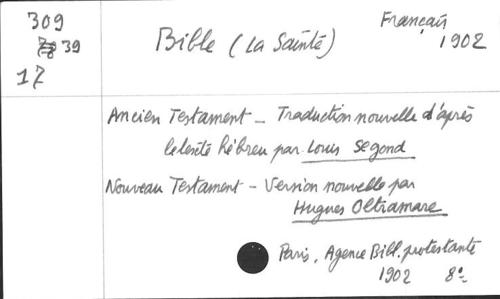 309
39
17
Français
1902
Bible (La Sainte)
Ancien Testament - Traduction nouvelle d'après
le texte hébreu par Louis Segond
Nouveau Testament - Version nouvelle par
Hugues Oltramare
Paris, Agence Bibl. protestante
1902 8º